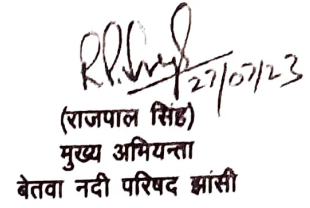 27/07/23
(राजपाल सिंह)
मुख्य अभियन्ता
बेतवा नदी परिषद झांसी